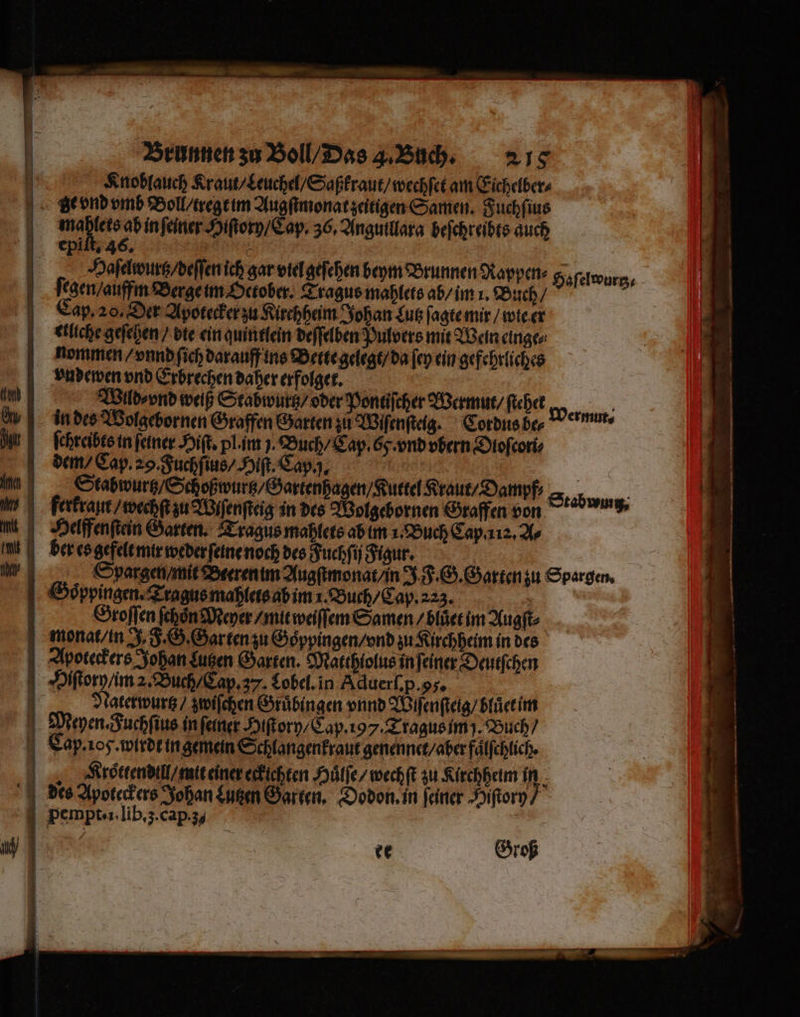 Brunnen zu Boll/Das 4. Buch. 215
Knoblauch Kraut/Leuchel/Saßkraut/wechſet am Eichelber⸗
ge vnd vmb Boll/tregt im Augſtmonat zeitigen Samen. Fuchſius
mahlets ab in ſeiner Hiſtory/Cap. 36, Anguillara beſchreibts auch
epiſt, 46.
Haſelwurtz/deſſen ich gar viel geſehen beym Brunnen Rappen⸗
Haſelwurtz,
ſegen/auffm Berge im October. Tragus mahlets ab/im 1. Buch/
Cap. 20. Der Apotecker zu Kirchheim Johan Lutz ſagte mir/wie er
etliche geſehen/die ein quintlein deſſelben Pulvers mit Wein einge⸗
nommen/vnnd ſich darauff ins Bette gelegt/da ſey ein gefehrliches
vndewen vnd Erbrechen daher erfolget.
Wild⸗vnd weiß Stabwurtz/oder Pontiſcher Wermut/ſtehet
Wermut.
in des Wolgebornen Graffen Garten zu Wiſenſteig. Cordus be⸗
ſchreibts in ſeiner Hiſt. pl. im 3. Buch/Cap. 65. vnd vbern Dioſcori⸗
dem/Cap. 29. Fuchſius/Hiſt. Cap. j.
Stabwurtz/Schoßwurtz/Gartenhagen/Kuttel Kraut/Dampf⸗
Stabwurtz,
ferkraut/wechſt zu Wiſenſteig in des Wolgebornen Graffen von
Helffenſtein Garten. Tragus mahlets ab im 1. Buch Cap. 112. A⸗
ber es gefelt mir weder ſeine noch des Fuchſij Figur.
Spargen/mit Beeren im Augſtmonat/in J.F.G. Garten zu
Spargen.
Göppingen. Tragus mahlets ab im 1. Buch/Cap. 223.
Groſſen ſchön Meyer/mit weiſſem Samen/blüet im Augſt⸗
monat/in J.F.G. Garten zu Göppingen/vnd zu Kirchheim in des
Apoteckers Johan Lutzen Garten. Matthiolus in ſeiner Deutſchen
Hiſtory/im 2. Buch/Cap. 37. Lobel. in Aduerſ. p. 95.
Naterwurtz/zwiſchen Grübingen vnnd Wiſenſteig/blüet im
Meyen. Fuchſius in ſeiner Hiſtory/Cap. 197. Tragus im j. Buch/
Cap. 105. wirdt in gemein Schlangenkraut genennet/aber fälſchlich.
Kröttendill/mit einer eckichten Hülſe/wechſt zu Kirchheim in
des Apoteckers Johan Lutzen Garten. Dodon. in ſeiner Hiſtory/
pempt. 1. lib. 3. cap. 3,
ee Groß